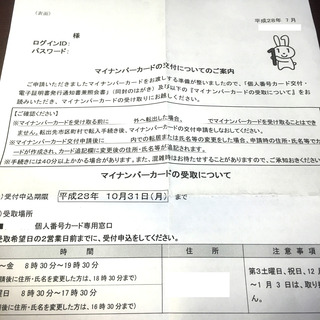 (表面)
平成28年 1月
様
ログインID:
パスワード:
マイナンバーカードの交付についてのご案内
ご申請いただきましたマイナンバーカードをお渡しする準備が整いましたので、「個人番号カード交付・
電子証明書発行通知書兼照会書」(同封のはがき)及び以下の『マイナンバーカードの受取について』をお
読みいただき、マイナンバーカードの受け取りにお越しください。
【ご確認ください】
※マイナンバーカードを受取る前に 外へ転出した場合、 でマイナンバーカードを受け取ることでき
ません。転出先市区町村で転入手続後、マイナンバーカードの交付申請をしなおしてください。
※マイナンバーカード交付申請後に 内での転居または氏名等の変更をした場合、申請時点の住所・氏名等でカ
ードが作成され、カード追記欄に変更後の住所・氏名等が追記されます。
※手続きには40分以上かかる場合があります。また、混雑時はお待たせすることがありますので、ご承知おきください。
マイナンバーカードの受取について
)受付申込期限 平成28年 10月31日(月) まで
)受取場所
■ 個人番号カード専用窓口
受取希望日の2営業日前までに、受付申込をしてください。
時間 休日 注意事項
~金 8時30分~19時30分 第3土曜日、祝日、12月
続時に住所・氏名を変更した方は、18時30分まで) ~1月3日は、取り扱
曜日 8時30分~17時00分 ん。
続時に住所・氏名を変更した方は、16時30分まで)